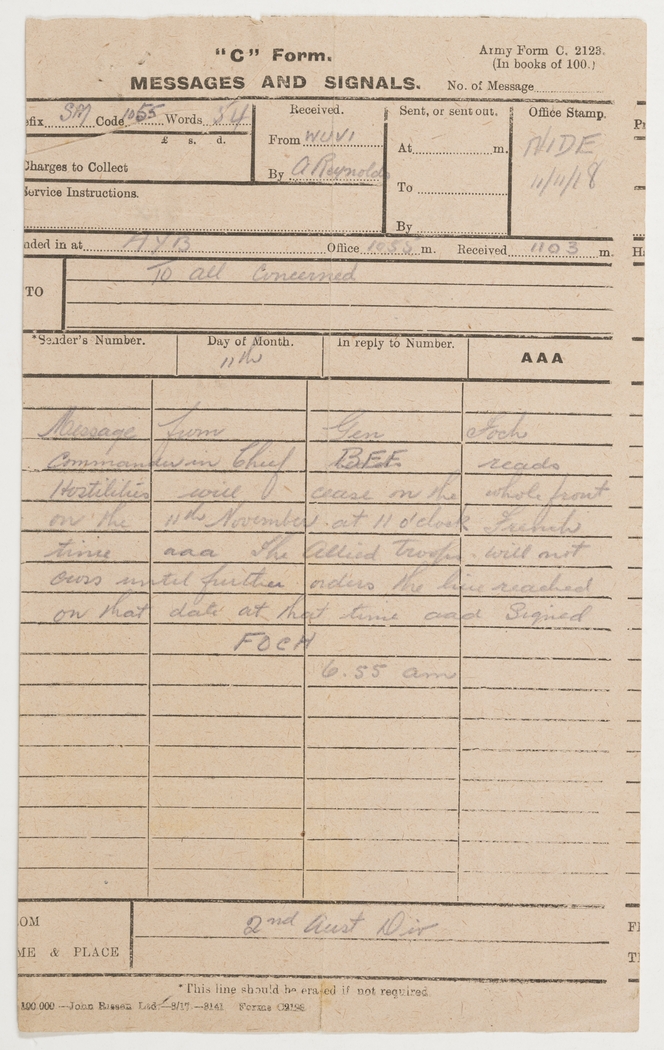 "C" Form.
MESSAGES AND SIGNALS.
Army Form C. 2123.
(In books of 100.)
No. of Message
efix SM Code 1055 Words 54
£ s. d.
Charges to Collect
Service Instructions.
Received.
From WUVI
By A Reynolds
Sent, or sent out.
At m.
To
By
Office Stamp.
NIDE
11/11/18
nded in at AYB Office 1055 m. Received 1103 m.
TO
To all concerned
*Sender's Number.
Day of Month.
11th
In reply to Number.
AAA
Message from Gen Foch
Commander in Chief BEF reads
Hostilities will cease on the whole front
on the 11th November at 11 o'clock French
time aaa The Allied troops will not
until further orders the line reached
on that date at that time aaa Signed
FOCH
6.55 am
OM
ME & PLACE
2nd Aust Div
*This line should be erased if not required.
100,000—John Rissen Ltd.—8/17.—8141 Forms C2123
Pr
H
FR
T